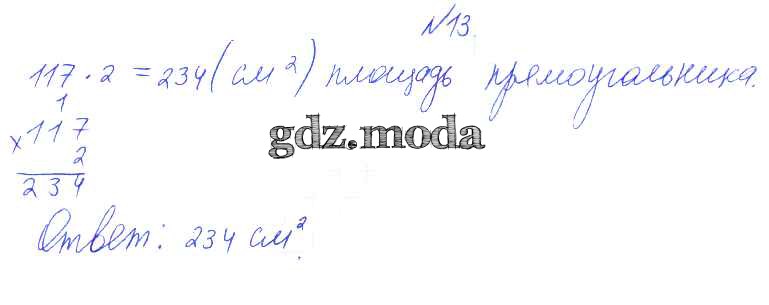 №13.
117 · 2 = 234 (см²) площадь прямоугольника.
1
×117
2
234
gdz.moda
Ответ: 234 см².